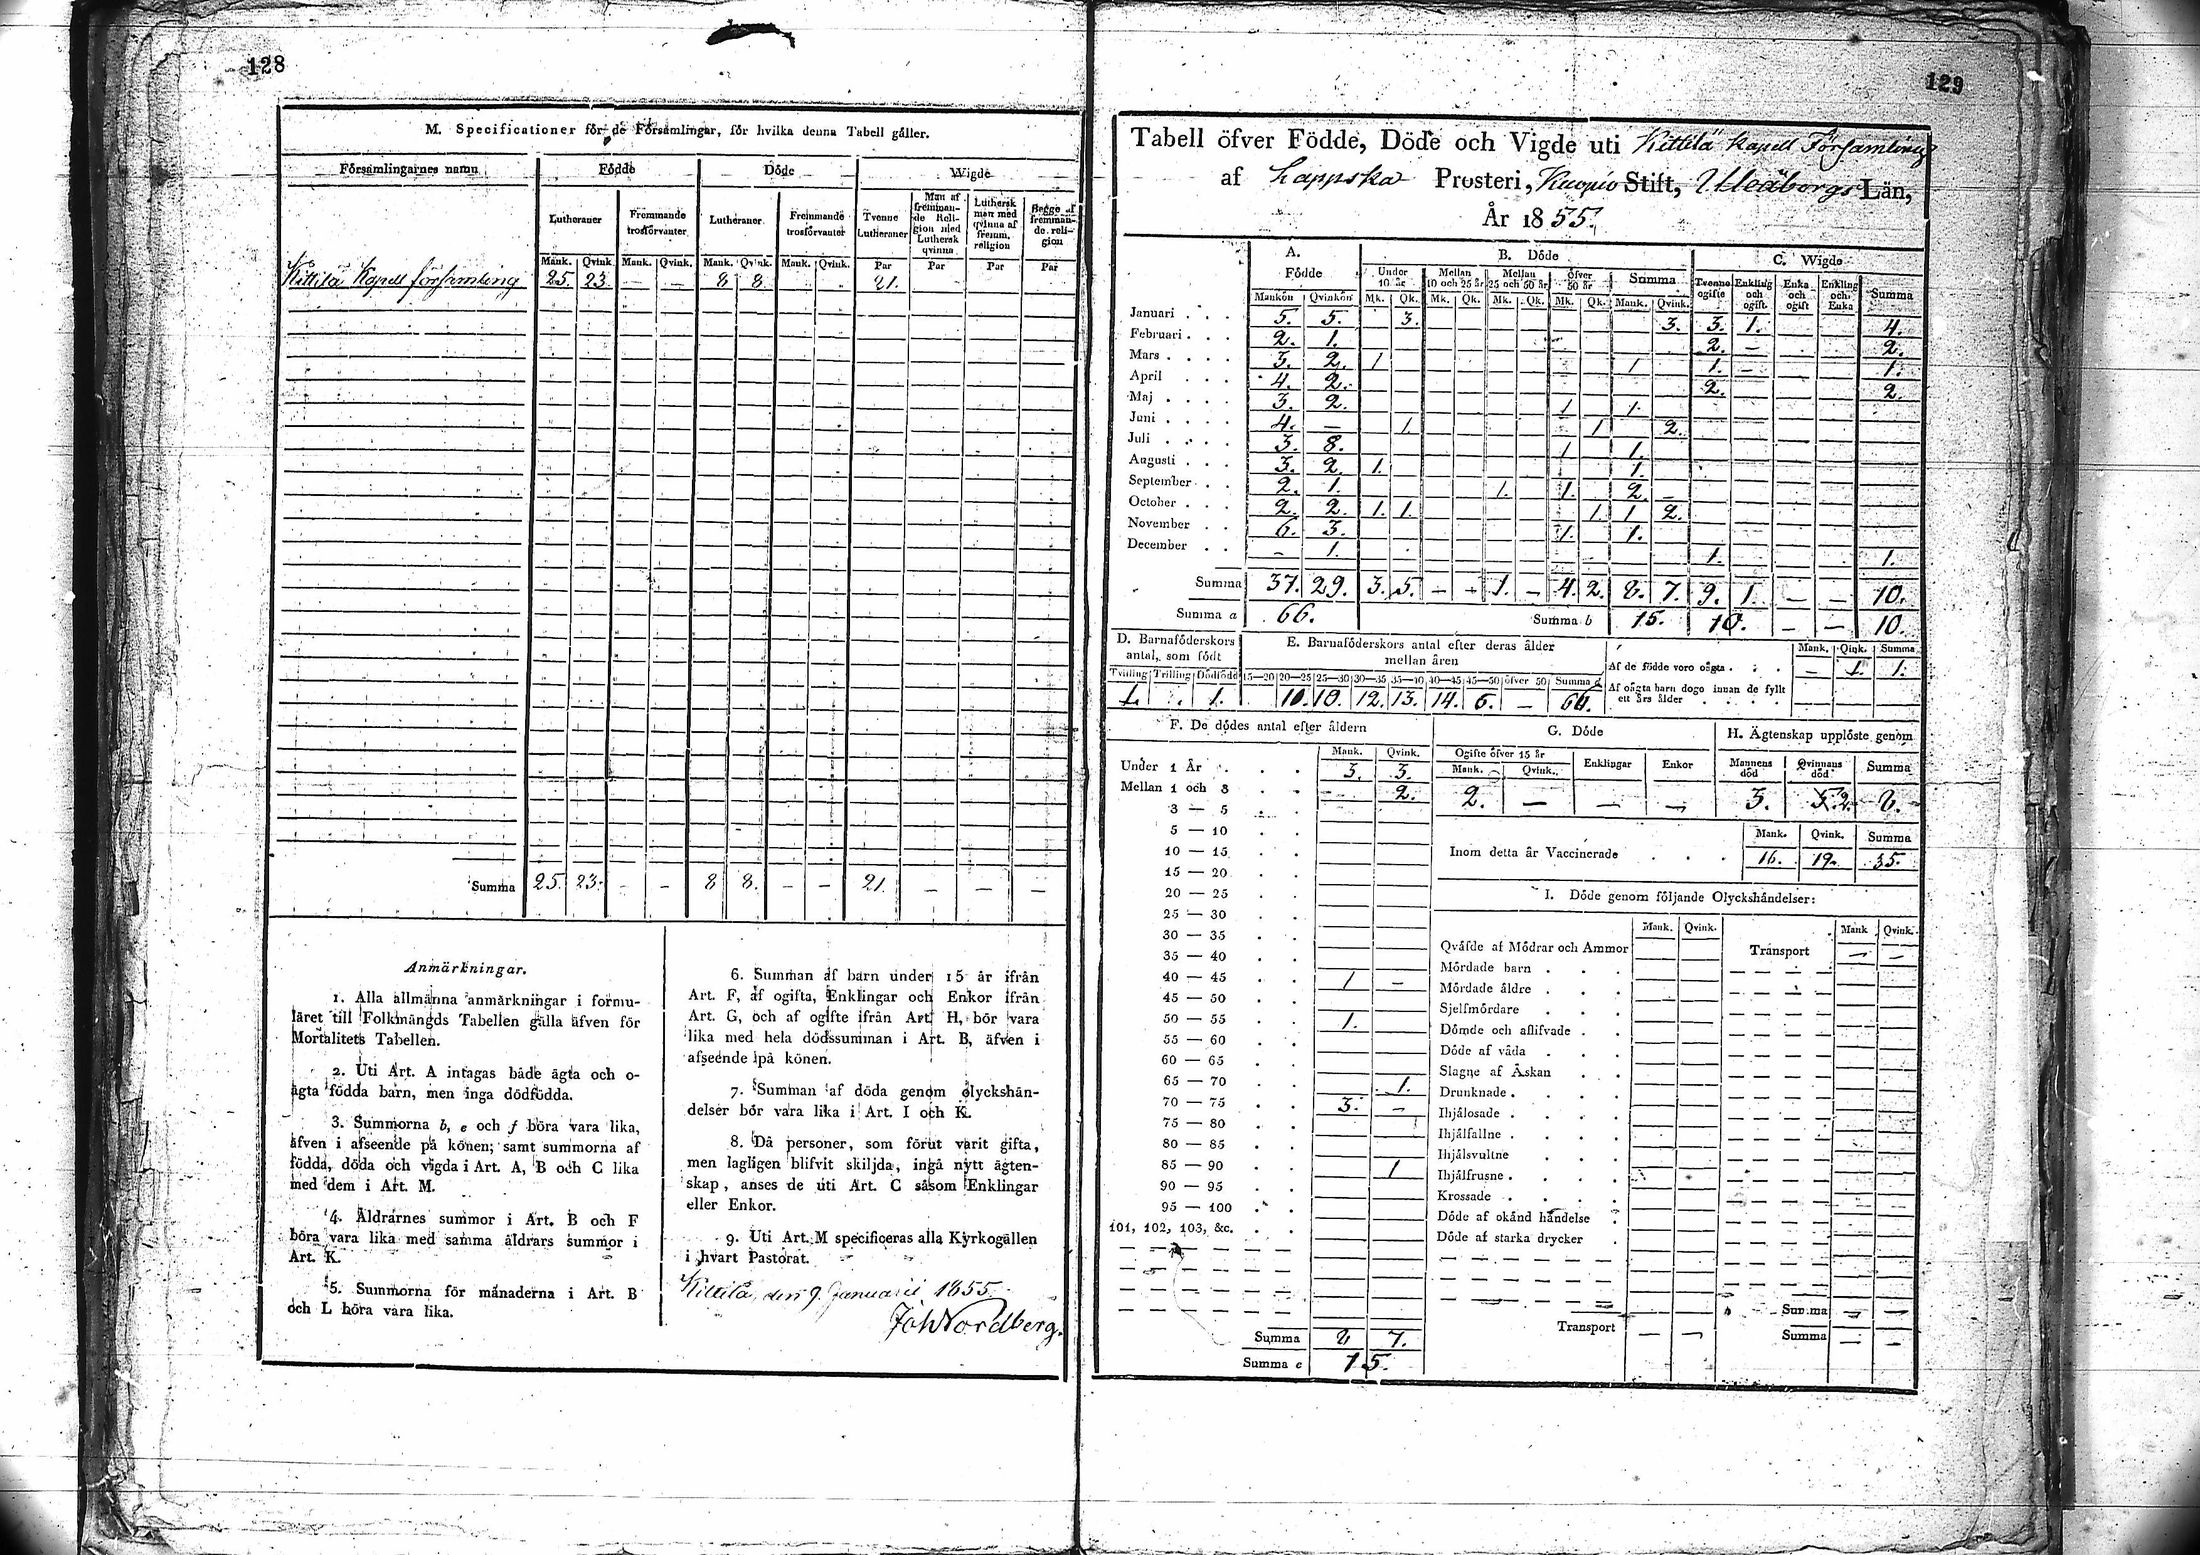 128
M. Specificationer för de Församlingar, för hvilka denna Tabell gäller.
Församlingarnes namn Födde Döde Wigde
Lutheraner Fremmande trosförvanter Lutheraner Fremmande trosförvanter Tvenne Lutheraner Man af fremmande Religion med Luthersk qvinna Luthersk man med qvinna af fremm. religion Begge af fremmande religion
Mank. Qvink. Mank. Qvink. Mank. Qvink. Mank. Qvink. Par Par Par Par
Kittilä Kapell församling 25. 23. — — 8 8. — — 21. — — —
Summa 25. 23. — — 8 8. — — 21. — — —
Anmärkningar.
1. Alla allmänna anmärkningar i formu-
läret till Folkmängds Tabellen gälla äfven för
Mortalitets Tabellen.
2. Uti Art. A intagas både ägta och o-
ägta födda barn, men inga dödfödda.
3. Summorna b, e och f böra vara lika,
äfven i afseende på könen; samt summorna af
födda, döda och vigda i Art. A, B och C lika
med dem i Art. M.
4. Åldrarnes summor i Art. B och F
böra vara lika med samma åldrars summor i
Art. K.
5. Summorna för månaderna i Art. B
och L böra vara lika.
6. Summan af barn under 15 år ifrån
Art. F, af ogifta, Enklingar och Enkor ifrån
Art. G, och af ogifte ifrån Art. H, bör vara
lika med hela dödssumman i Art. B, äfven i
afseende på könen.
7. Summan af döda genom olyckshän-
delser bör vara lika i Art. I och K.
8. Då personer, som förut varit gifta,
men lagligen blifvit skiljda, ingå nytt ägten-
skap, anses de uti Art. C såsom Enklingar
eller Enkor.
9. Uti Art. M specificeras alla Kyrkogällen
i hvart Pastorat.
Kittilä, den 9. Januarii 1855.
Joh Nordberg.
129
Tabell öfver Födde, Döde och Vigde uti Kittilä Kapell Församling
af Lappska Prosteri, Kuopio Stift, Uleåborgs Län,
År 1855.
A. Födde B. Döde C. Wigde
Under 10 år Mellan 10 och 25 år Mellan 25 och 50 år Öfver 50 år Summa Tvenne ogifte Enkling och ogift Enka och ogift Enkling och Enka Summa
Mankön Qvinkön Mk. Qk. Mk. Qk. Mk. Qk. Mk. Qk. Mank. Qvink.
Januari 5. 5. 3. 3. 3. 1. 4.
Februari 2. 1. 2. — 2.
Mars 3. 2. 1 1 1. — 1.
April 4. 2. 2. 2.
Maj 3. 2. 1 1.
Juni 4. — 1. 1 2.
Juli 3. 8. 1 1.
Augusti 3. 2. 1. 1.
September 2. 1. 1. 1. 2. —
October 2. 2. 1. 1. 1. 1 2.
November 6. 3. 1. 1.
December — 1. 1. 1.
Summa 37. 29. 3. 5. — — 1. — 4. 2. 8. 7. 9. 1. — — 10.
Summa a 66. Summa b 15. 10. — — 10.
D. Barnaföderskors antal, som födt
Tvilling Trilling Dödfödd
1. 1.
E. Barnaföderskors antal efter deras ålder mellan åren
15—20 20—25 25—30 30—35 35—40 40—45 45—50 öfver 50 Summa d
10. 10. 12. 13. 14. 6. —
Mank. Qink. Summa
Af de födde voro oägta — 1. 1.
Af oägta barn dogo innan de fyllt
ett års ålder
F. De dödes antal efter åldern
Mank. Qvink.
Under 1 År 3. 3.
Mellan 1 och 3 2.
3 — 5
5 — 10
10 — 15
15 — 20
20 — 25
25 — 30
30 — 35
35 — 40
40 — 45 1 —
45 — 50
50 — 55 1.
55 — 60
60 — 65
65 — 70 1.
70 — 75 3. —
75 — 80
80 — 85
85 — 90 1
90 — 95
95 — 100
101, 102, 103, &c.
Summa 8 7.
Summa e 15.
G. Döde
Ogifte öfver 15 år Enklingar Enkor
Mank. Qvink.
2. — — —
H. Ägtenskap upplöste genom
Mannens död Qvinnans död Summa
3.
Mank. Qvink. Summa
Inom detta år Vaccinerade 16. 19. 35.
I. Döde genom följande Olyckshändelser:
Mank. Qvink. Mank Qvink.
Qväfde af Mödrar och Ammor Transport — —
Mördade barn
Mördade äldre
Sjelfmördare
Dömde och aflifvade
Döde af våda
Slagne af Åskan
Drunknade
Ihjälosade
Ihjälfallne
Ihjälsvultne
Ihjälfrusne
Krossade
Döde af okänd händelse
Döde af starka drycker
Summa — —
Transport — — Summa — —